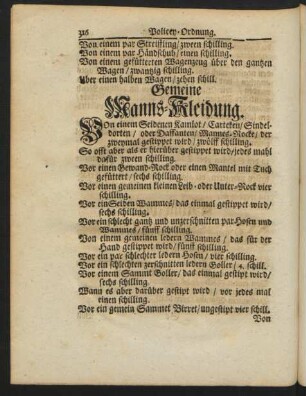 316 Policey-Ordnung.
Von einem par Streiffling / zween schilling.
Von einem par Händschuh / einen schilling.
Von einem gefütterten Wagenzeug über den gantzen
Wagen / zwantzig schilling.
Uber einen halben Wagen / zehen schill.
Gemeine
Manns-Kleidung.
VOn einem Seidenen Kamlot / Tartecken / Sindel-
dorten / oder Daffanten / Mannes-Rocke / der
zweymal gestippet wird / zwölff schilling.
So offt aber als er hierüber gestippet wird / jedes mahl
dafür zween schilling.
Vor einen Gewand-Rock oder einen Mantel mit Tuch
gefüttert / sechs schilling.
Vor einen gemeinen kleinen Leib- oder Unter-Rock vier
schilling.
Vor ein Seiden Wammes / das einmal gestippet wird /
sechs schilling.
Vor ein schlecht gantz und unzerschnitten par Hosen und
Wammes / fünff schilling.
Von einem gemeinen ledern Wammes / das für der
Hand gestippet wird / fünff schilling.
Vor ein par schlechter ledern Hosen / vier schilling.
Vor ein schlechten zerschnitten ledern Goller / 4. schill.
Vor einem Sammt Goller / das einmal gestipt wird /
sechs schilling.
Wann es aber darüber gestipt wird / vor jedes mal
einen schilling.
Vor ein gemein Sammet Birret / ungestipt vier schill.
Von